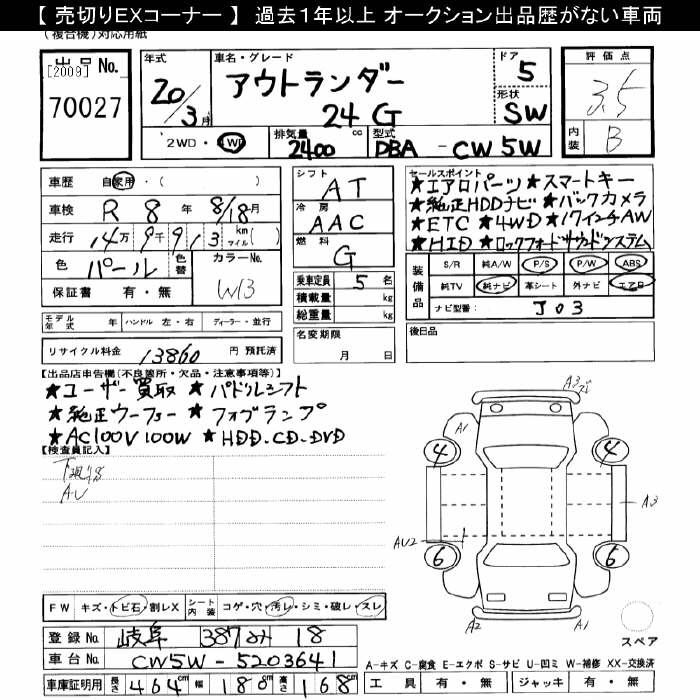 【 売切りEXコーナー 】 過去1年以上 オークション出品歴がない車両
(複合機)対応用紙
出品 No.
[2009]
70027
年式
20/3月
車名・グレード
アウトランダー
24G
ドア
5
形状
SW
評価点
3.5
内装
B
2WD・4WD
排気量
2400 cc
型式
DBA - CW5W
車歴 自家用・( )
車検 R 8 年 8/18月
走行 14万9千913 km マイル( )
色 パール 色替 カラーNo. W13
保証書 有・無
シフト
AT
冷房
AAC
燃料
G
乗車定員 5 名
積載量 kg
総重量 kg
名変期限
月 日
セールスポイント
★エアロパーツ★スマートキー
★純正HDDナビ★バックカメラ
★ETC ★4WD ★17インチAW
★HID ★ロックフォードサウンドシステム
装備品
S/R 純A/W P/S P/W ABS
純TV 純ナビ 革シート 外ナビ エアB
ナビ型番: J03
モデル年式 年 ハンドル 左・右 ディーラー・並行
後日品
リサイクル料金 13860 円 預託済
【出品店申告欄(不良箇所・欠品・注意事項等)】
★ユーザー買取 ★パドルシフト
★純正ウーファー ★フォグランプ
★AC100V100W ★HDD.CD.DVD
【検査員記入】
AU
A1
A1
4
4
A3
AU2
6
6
A2
A1
スペア
FW キズ・トビ石・割レX シート内装 コゲ・穴・汚レ・シミ・破レ・スレ
登録No. 岐阜 387 み 18
車台No. CW5W-5203641
車庫証明用 長さ 464 cm 幅 180 cm 高さ 168 cm
A-キズ C-腐食 E-エクボ S-サビ U-凹ミ W-補修 XX-交換済
工具 有・無 ジャッキ 有・無